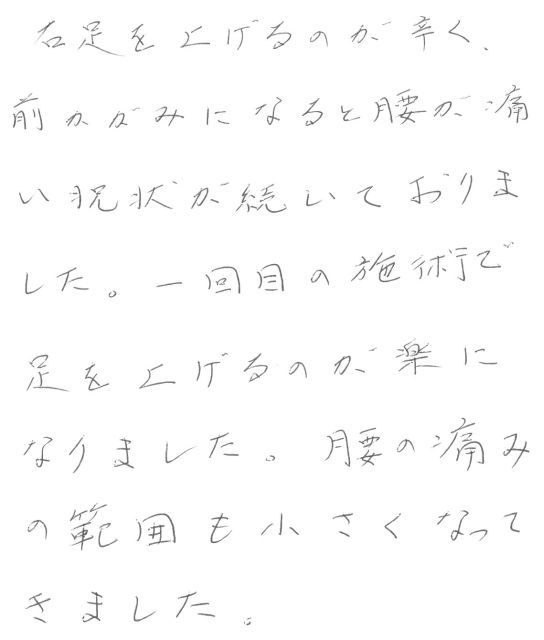 右足を上げるのが辛く、
前かがみになると腰が痛
い状状が続いておりま
した。一回目の施術で
足を上げるのが楽に
なりました。腰の痛み
の範囲も小さくなって
きました。